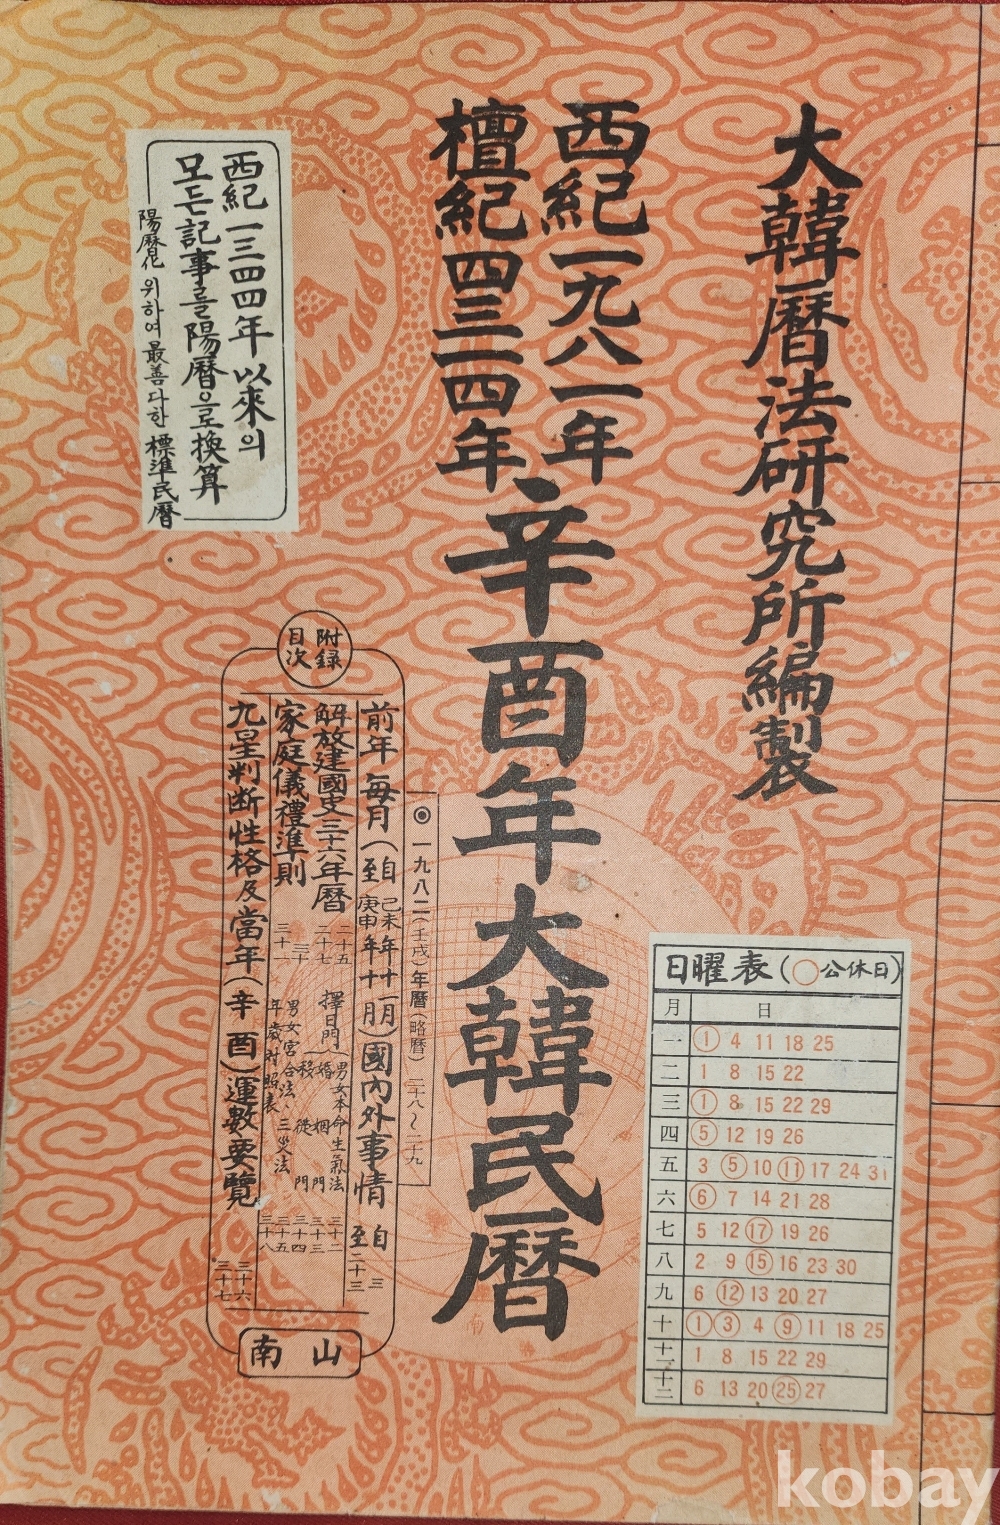 大韓曆法研究所編製
西紀一九八一年
檀紀四三一四年
辛酉年大韓民曆
西紀一三四四年以來의
모든記事를陽曆으로換算
陽曆化 위하여 最善다한 標準民曆
附錄
目次
◉一九八二(壬戌)年曆(略曆) 二十八~二十九
前年 每月(自己未年十一月 至庚申年十月)國內外事情 自三 至二十三
解放建國史三十六年曆 二十五 二十七
擇日門(男女本命生氣法 三十二
婚姻門 三十三
移徙門 三十四
家庭儀禮準則 三十 三十一
男女宮合法、三災法 三十五
年歲對照表 三十八
九星判斷性格及當年(辛酉)運數要覽 三十六 三十七
南山
日曜表(○公休日)
月 日
一 ① 4 11 18 25
二 1 8 15 22
三 ① 8 15 22 29
四 ⑤ 12 19 26
五 3 ⑤ 10 ⑪ 17 24 31
六 ⑥ 7 14 21 28
七 5 12 ⑰ 19 26
八 2 9 ⑮ 16 23 30
九 6 ⑫ 13 20 27
十 ① ③ 4 ⑨ 11 18 25
十一 1 8 15 22 29
十二 6 13 20 ㉕ 27
南
kobay